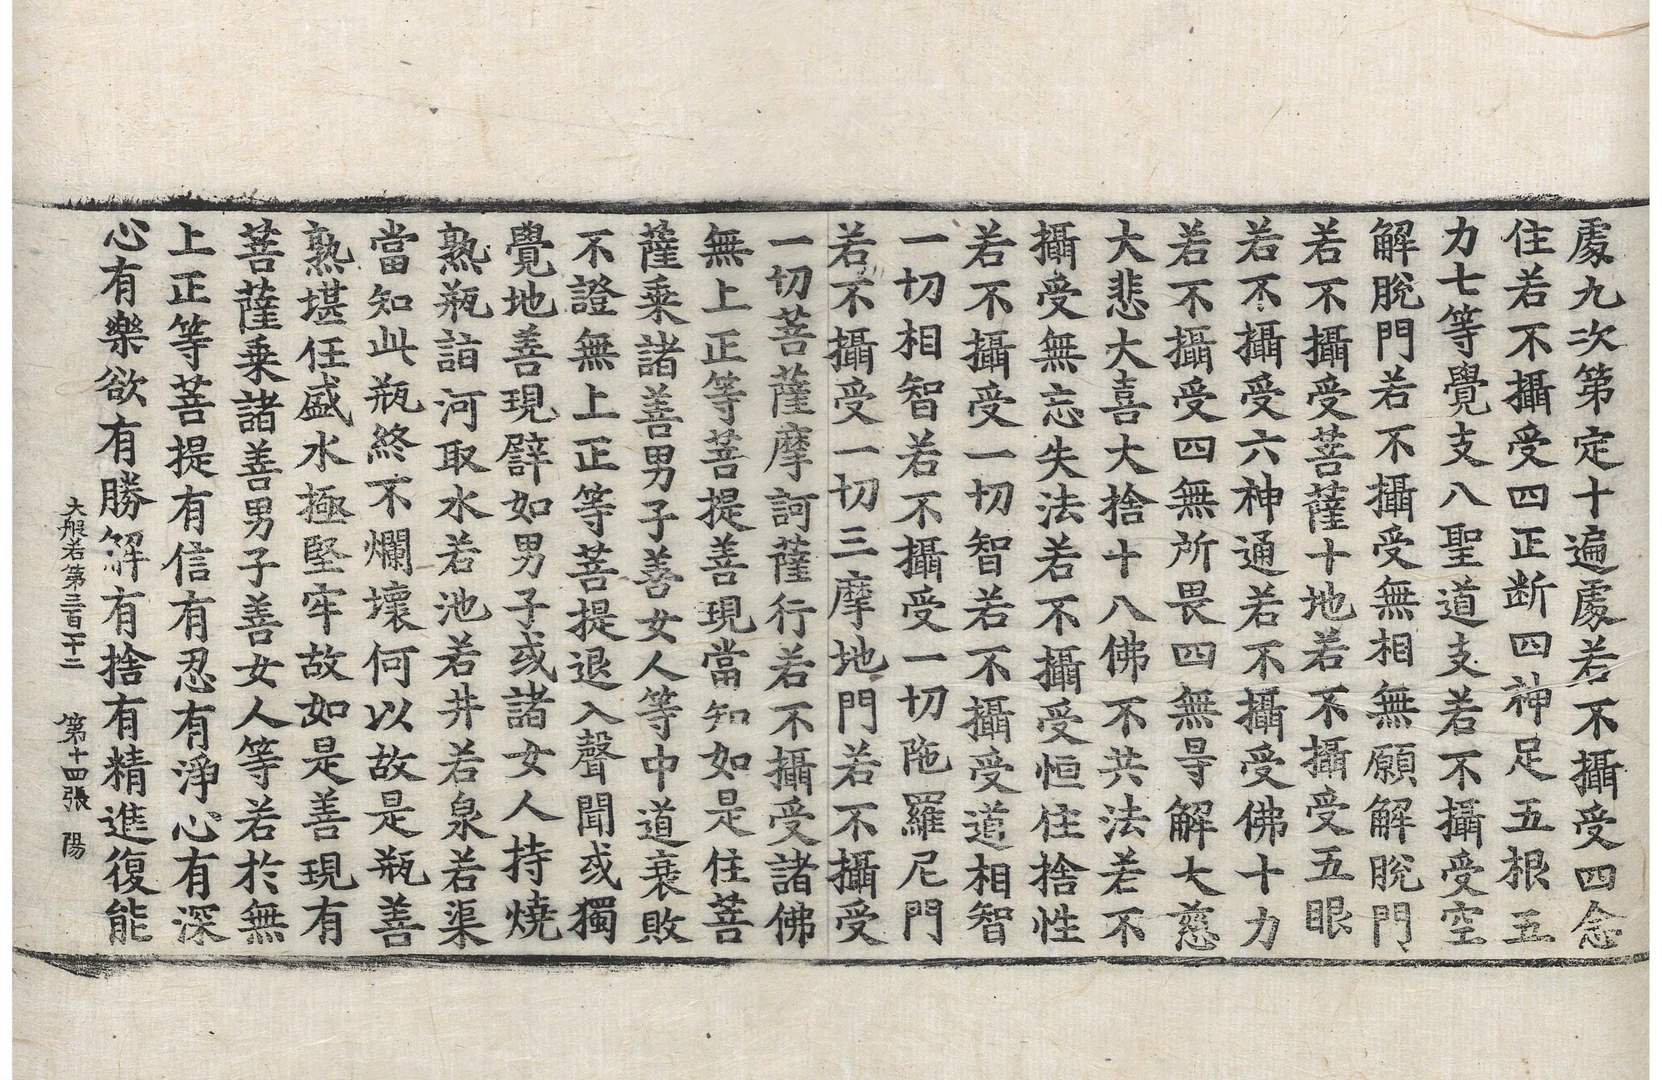 處九次第定十遍處若不攝受四念
住若不攝受四正斷四神足五根五
力七等覺支八聖道支若不攝受空
解脫門若不攝受無相無願解脫門
若不攝受菩薩十地若不攝受五眼
若不攝受六神通若不攝受佛十力
若不攝受四無所畏四無㝵解大慈
大悲大喜大捨十八佛不共法若不
攝受無忘失法若不攝受恒住捨性
若不攝受一切智若不攝受道相智
一切相智若不攝受一切陁羅尼門
若不攝受一切三摩地門若不攝受
一切菩薩摩訶薩行若不攝受諸佛
無上正等菩提善現當知如是住菩
薩乘諸善男子善女人等中道衰敗
不證無上正等菩提退入聲聞或獨
覺地善現譬如男子或諸女人持燒
熟瓶詣河取水若池若井若泉若渠
當知此瓶終不爛壞何以故是瓶善
熟堪任盛水極堅牢故如是善現有
菩薩乘諸善男子善女人等若於無
上正等菩提有信有忍有淨心有深
心有樂欲有勝解有捨有精進復能
大般若第三百十二 第十四張 陽